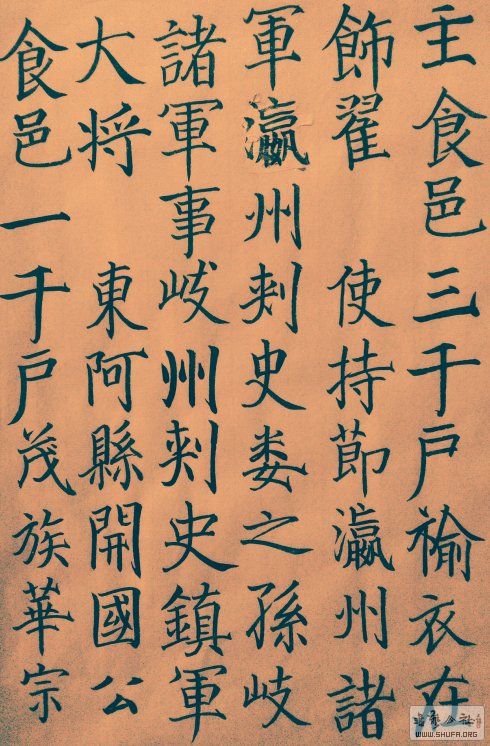 主食邑三千户褕衣在
飾翟 使持節瀛州諸
軍瀛州刾史娄之孫岐
諸軍事歧州刾史鎮軍
大将 東阿縣開國公
食邑一千户茂族華宗
WWW.SHUFA.ORG